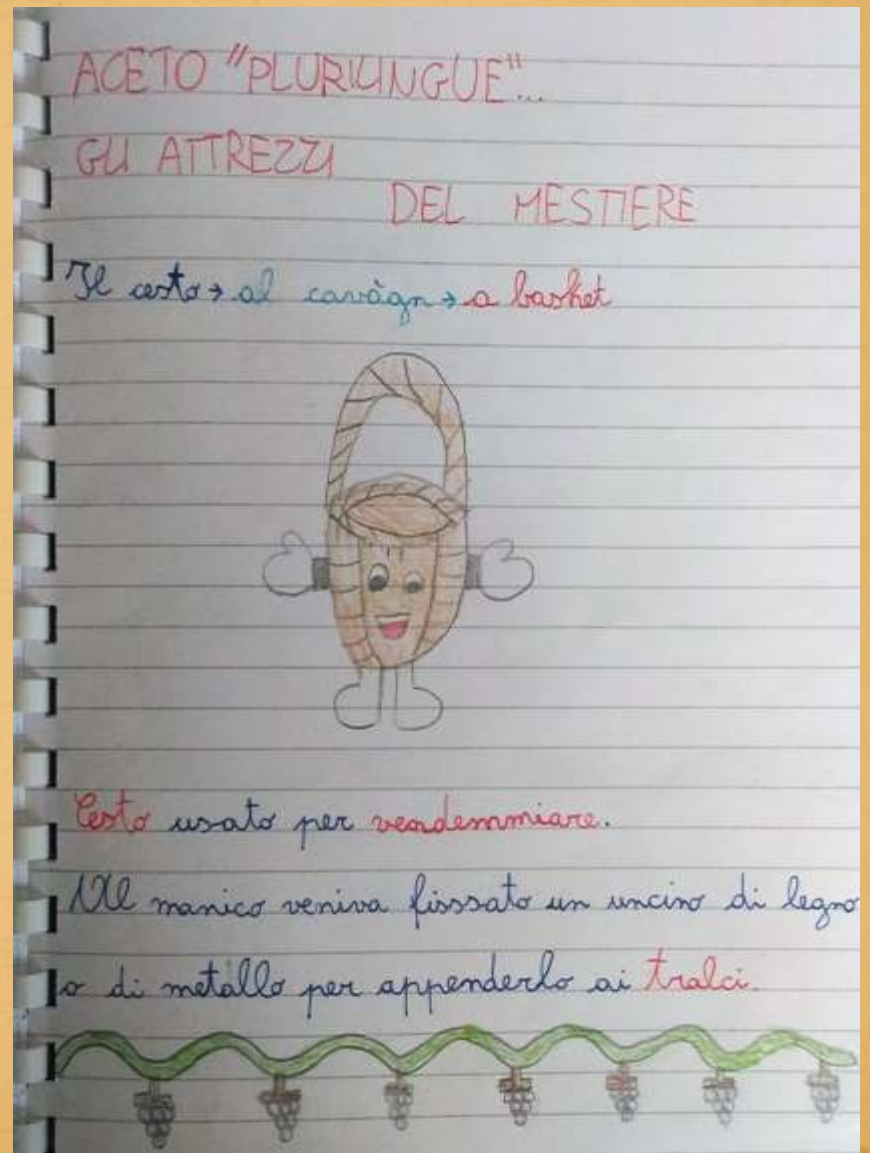 ACETO "PLURILINGUE"...
GLI ATTREZZI
DEL MESTIERE
Il cesto → al cavàgn → a basket
Cesto usato per vendemmiare.
Al manico veniva fissato un uncino di legno
o di metallo per appenderlo ai tralci.